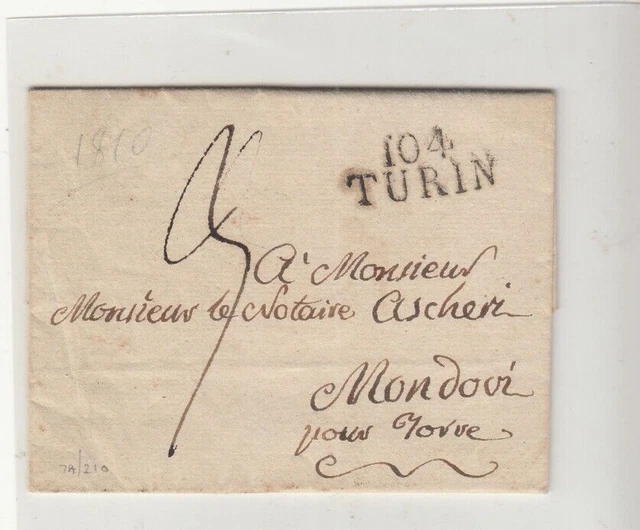 1810
104
TURIN
A' Monsieur
Monsieur le Notaire Ascheri
Mondovi
pour Torre
7A/210